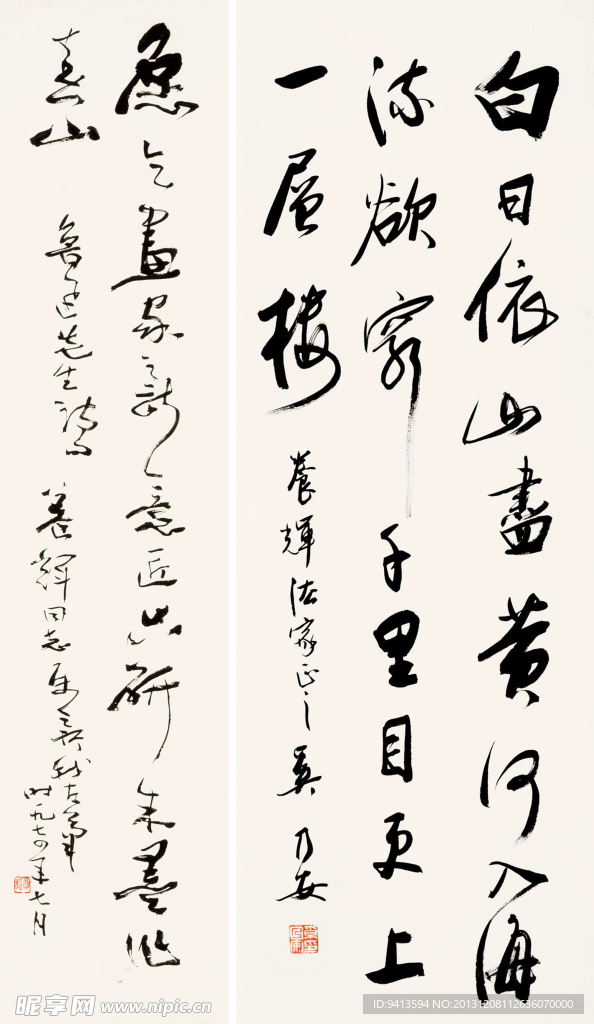 白日依山盡黃河入海
流欲窮千里目更上
一層樓
養輝法家正之 吳
愿乞畫家新意匠只研朱墨作
春山
魯迅先生詩句
養輝同志屬
时一九七四年七月
昵享网 www.nipic.cn
ID:9413594 NO:20131208112636070000